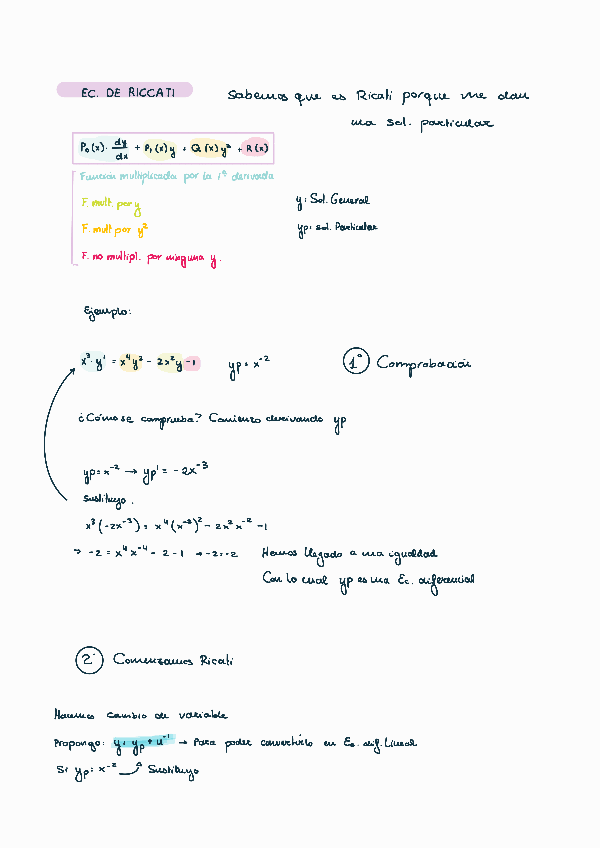 EC. DE RICCATI
Sabemos que es Ricati porque me dan
una sol. particular
P₀(x) · dy/dx + P₁(x)y + Q(x)y² + R(x)
Función multiplicada por la 1ª derivada
F. mult. por y
F. mult por y²
F. no multipl. por ninguna y.
y: Sol. General
yp: sol. Particular
Ejemplo:
x³ · y' = x⁴y² - 2x²y - 1
yp = x⁻²
1º Comprobación
¿Cómo se comprueba? Comienzo derivando yp
yp = x⁻² → yp' = -2x⁻³
Sustituyo.
x³(-2x⁻³) = x⁴(x⁻²)² - 2x²x⁻² - 1
→ -2 = x⁴x⁻⁴ - 2 - 1 → -2=-2
Hemos llegado a una igualdad
Con lo cual yp es una Ec. diferencial
2º Comenzamos Ricati
Hacemos cambio de variable
Propongo: y = yp + u⁻¹ → Para poder convertirlo en Ec. dif. Lineal
Si yp = x⁻² Sustituyo